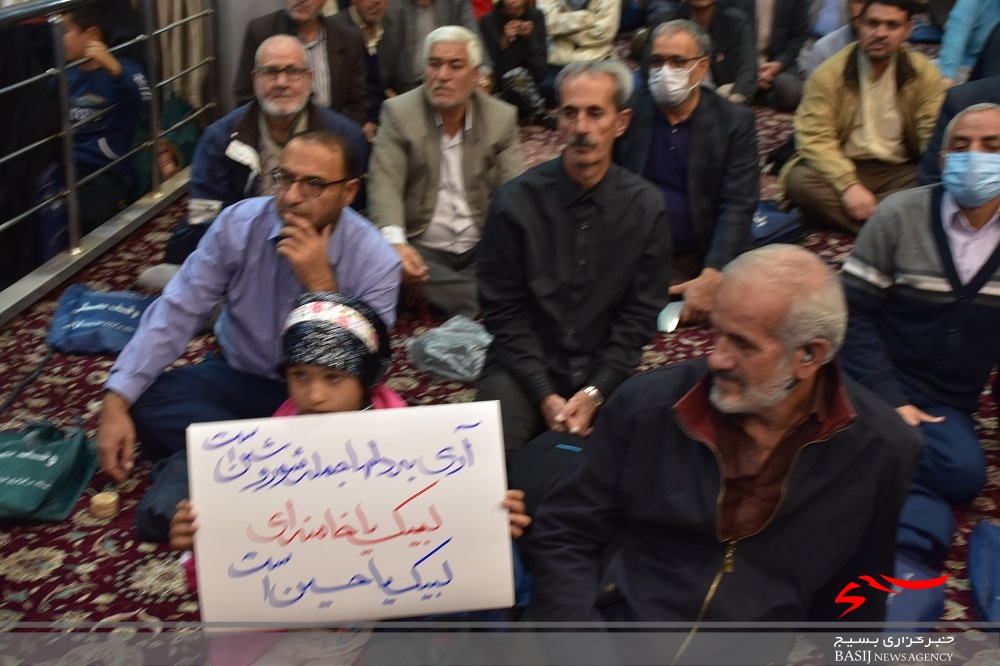 آری به دلم شور و شین است
لبیک یا خامنه ای
لبیک یا حسین است
خبرگزاری بسیج
BASIJ NEWS AGENCY